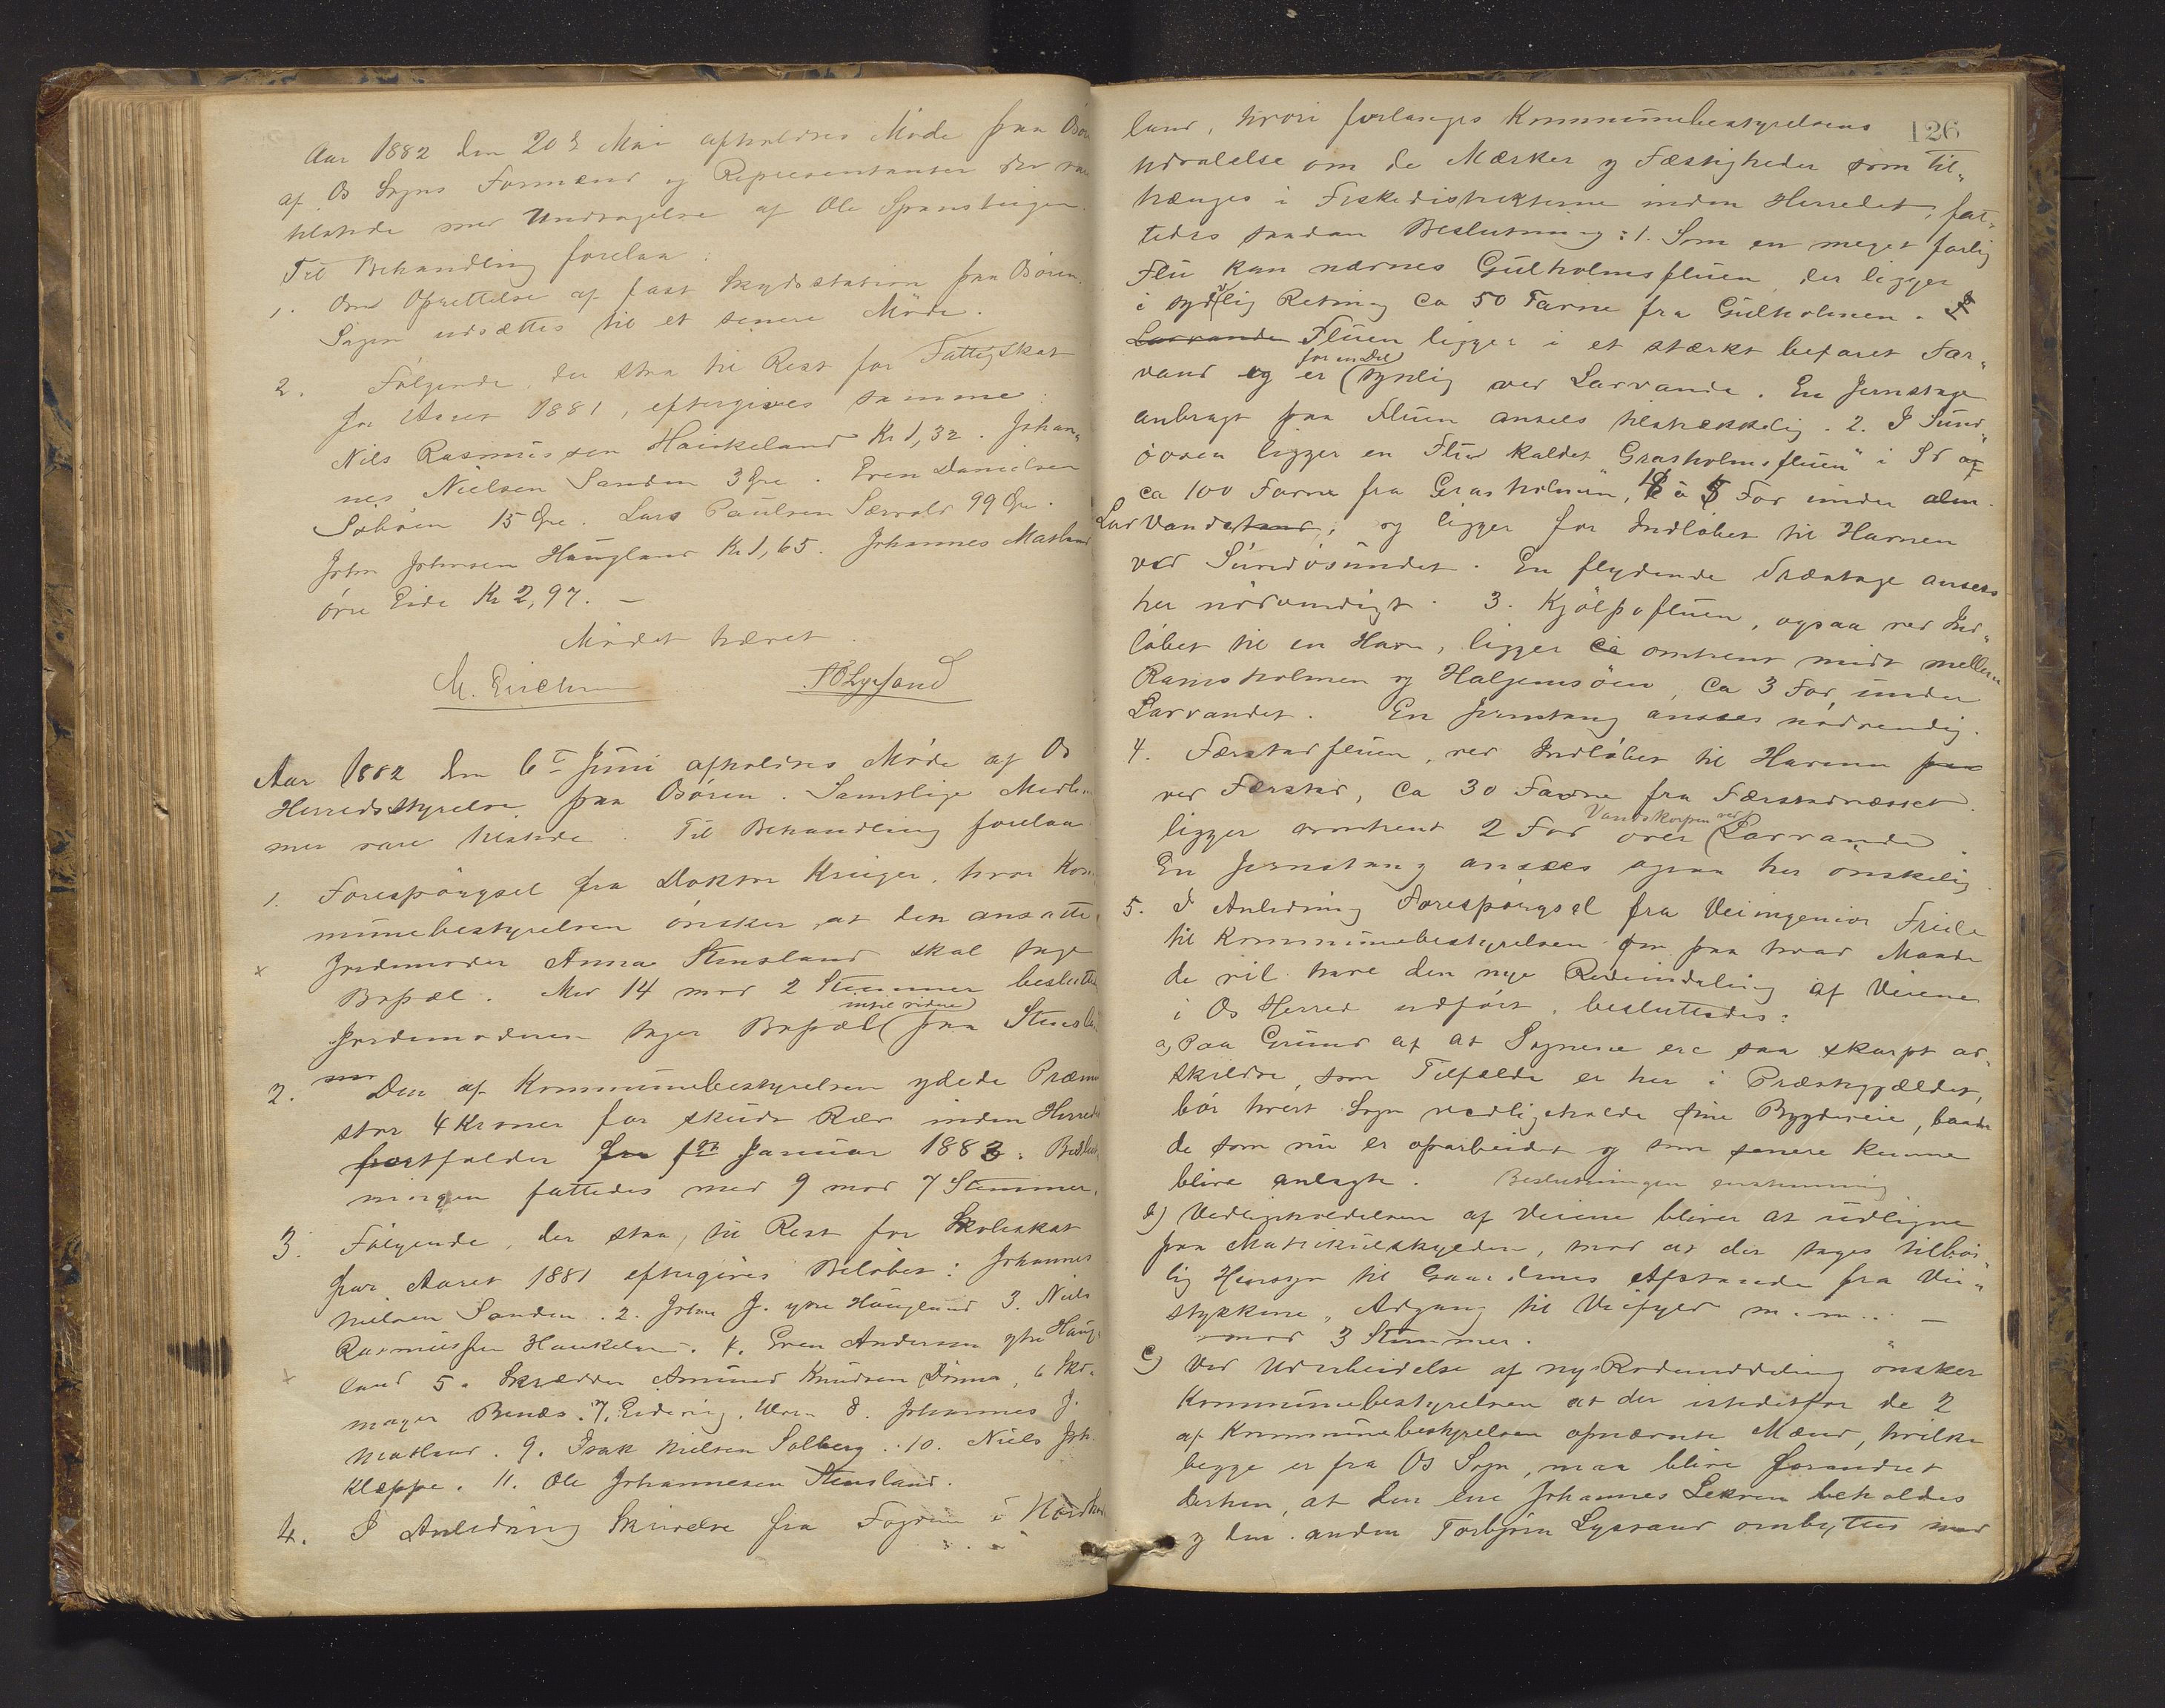 Aar 1882 den 20de Mai afholdtes Møde paa Osøren
af Os Sogns Formænd og Representanter der var
tilstede med Undtagelse af Ole
Til Behandling forelaa:
1. Om Oprettelse af fast Skydsstation paa Osøren.
Sagen udsættes til et senere Møde.
2. Følgende, der staa til Rest for Fattigskat
for Aaret 1881, eftergives samme:
Nils Rasmussen Haukeland Kr 1,32. Johan„
nes Nielsen Sanden 3 Øre. Sven Danielsen
Søbøen 15 Øre. Lars Paulsen Særvold 99 Øre.
John Johnsen Haugland Kr 1,65. Johannes Matland
øvre Eide Kr 2,97. —
Mødet hævet.
M. Erichsen TO Lyssand
Aar 1882 den 6te Juni afholdtes Møde af Os
Herredsstyrelse paa Osøren. Samtlige Medlem
mer vare tilstede. Til Behandling forelaa
1. Forespørgsel fra Doktor Krüger, hvor Kom
munebestyrelsen ønsker, at den ansatte
x Jordemoder Anna Stensland skal tage
Bopæl. Med 14 mod 2 Stemmer besluttes
indtil videre
Jordemoderen tager Bopæl (paa Stensla
2. Den af Kommunebestyrelsen ydede Præmie
stor 4 Kroner for skudt Ræv inden Herredet
bortfalder fra 1ste Januar 1883. Beslut
ningen fattedes med 9 mod 7 Stemmer.
3. Følgende, der staa, til Rest for Skoleskat
for Aaret 1881 eftergives Beløbet: Johannes
Nielsen Sanden. 2. John J. ytre Haugland 3. Niels
Rasmussen Haukeland. 4. Sven Andersen ytre Haug„
x land 5. Skrædder Amund Knudsen Dömma, 6 Sko„
mager Benæs. 7. 8. Johannes J.
Matland. 9. Isak Nielsen Solberg. 10. Niels Joh.
Kleppe. 11. Ole Johannesen Stensland.
4. I Anledning Skrivelse fra Fogden i Nordhord
126
land, hvori forlanges Kommunebestyrelsens
Udtalelse om de Mærker og Fæstigheder som til„
trænges i Fiskedistrikterne inden Herredet, fat„
tedes saadan Beslutning: 1. Som en meget farlig
Flu kan nævnes Gulholmsfluen, der ligger
i sydlig Retning Ca 50 Favne fra Gulholmen.
Lavvande Fluen ligger i et stærkt befaret Far„
for en Del
vand og er (synlig ved Lavvande. En Jernstage
anbragt paa Fluen ansees tilstrækkelig. 2. I Sund„
øosen ligger en Flu kaldet „Grasholmsfluen“ i Sv af
ca 100 Favne fra Grasholmen, á 5 Fod under alm.
Lavvandstand, og ligger for Indløbet til Havnen
ved Sundøsundet. En flydende Træstage ansees
her nødvendigt. 3. Kjölpofluen, ogsaa ved Ind„
løbet til en Havn, ligger Ca omtrent midt mellem
Ramsholmen og Halgemsøen, Ca 3 Fod, under
Lavvandet. En Jernstang ansees nødvendig.
4. Færstadfluen, ved Indløbet til Havnen paa
ved Færstad, Ca 30 Favne fra Færstadnæsset.
Vandskorpen ved
ligger omtrent 2 Fod over (Lavvande
En Jernstang ansees ogsaa her ønskelig.
5. I Anledning Forespørgsel fra Veiingeniør Friele
til Kommunebestyrelsen om paa hvad Maade
de vil have den nye Rodeinddeling af Veiene
i Os Herred udført, besluttedes:
a) Paa Grund af at Sognene ere saa skarpt ad„
skildte, som Tilfældet er her i Præstegjældet,
bør hvert Sogn vedligeholde sine Bygdeveie, baade
de som nu er oparbeidet og som senere kunne
blive anlagte. Beslutningen enstemmig
b) Vedligeholdelsen af Veiene bliver at udligne
paa Matrikulskylden, mod at der tages tilbør„
lig Hensyn til Gaardenes Afstande fra Vei„
stykkene, Adgang til Veifyld m. m.. —
mod 3 Stemmer.
c) Ved Udarbeidelse af ny Rodeinddeling ønsker
Kommunebestyrelsen at der istedetfor de 2
af Kommunebestyrelsen opnævnte Mænd, hvilke
begge er fra Os Sogn, maa blive forandret
derhen, at den ene Johannes Lekven beholdes
og den anden Torbjørn Lyssand ombyttes med